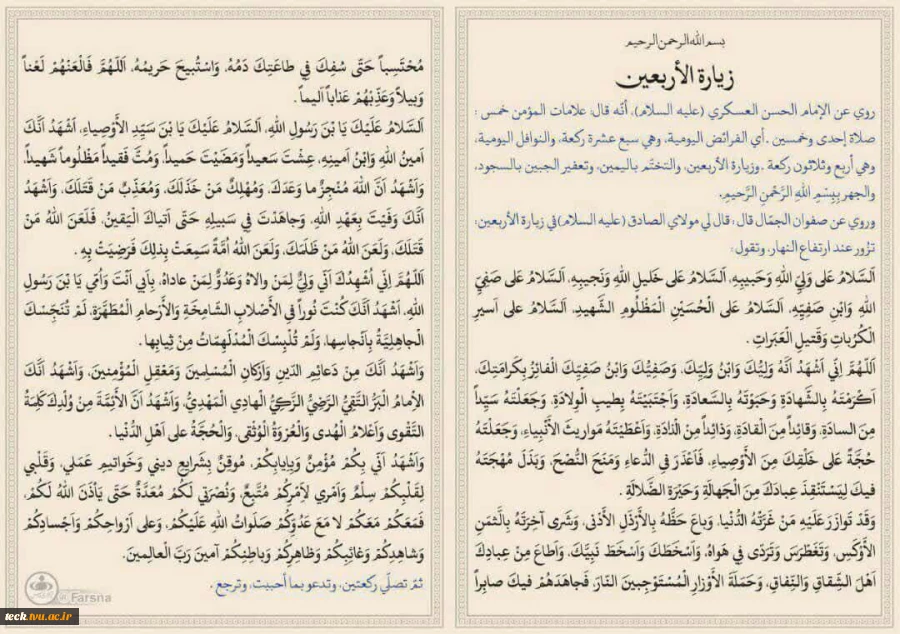 بسم الله الرحمن الرحيم
زيارة الأربعين
روي عن الإمام الحسن العسكري (عليه السلام)، أنّه قال: علامات المؤمن خمس :
صلاة إحدى وخمسين ، أي الفرائض اليومية، وهي سبع عشرة ركعة، والنوافل اليومية،
وهي أربع وثلاثون ركعة ، وزيارة الأربعين، والتختّم باليمين، وتعفير الجبين بالسجود،
والجهر بِبِسْمِ اللهِ الرَّحْمنِ الرَّحيمِ.
وروي عن صفوان الجمّال قال : قال لي مولاي الصادق (عليه السلام)في زيارة الأربعين:
تزُور عند ارتفاع النهار، وتقول:
اَلسَّلامُ عَلى وَلِيِّ اللهِ وَحَبيبِهِ، اَلسَّلامُ عَلى خَليلِ اللهِ وَنَجيبِهِ، اَلسَّلامُ عَلى صَفِيِّ
اللهِ وَابْنِ صَفِيِّهِ، اَلسَّلامُ عَلى الْحُسَيْنِ الْمَظْلُومِ الشَّهيدِ، اَلسَّلامُ على اَسيرِ
الْكُرُباتِ وَقَتيلِ الْعَبَراتِ .
اَللّهُمَّ اِنّي اَشْهَدُ اَنَّهُ وَلِيُّكَ وَابْنُ وَلِيِّكَ، وَصَفِيُّكَ وَابْنُ صَفِيِّكَ الْفائِزُ بِكَرامَتِكَ،
اَكْرَمْتَهُ بِالشَّهادَةِ وَحَبَوْتَهُ بِالسَّعادَةِ، وَاَجْتَبَيْتَهُ بِطيبِ الْوِلادَةِ، وَجَعَلْتَهُ سَيِّداً
مِنَ السادَةِ، وَقائِداً مِنَ الْقادَةِ، وَذائِداً مِنْ الْذادَةِ، وَاَعْطَيْتَهُ مَواريثَ الاَْنْبِياءِ، وَجَعَلْتَهُ
حُجَّةً عَلى خَلْقِكَ مِنَ الاَْوْصِياءِ، فَاَعْذَرَ فىِ الدُّعاءِ وَمَنَحَ النُّصْحَ، وَبَذَلَ مُهْجَتَهُ
فيكَ لِيَسْتَنْقِذَ عِبادَكَ مِنَ الْجَهالَةِ وَحَيْرَةِ الضَّلالَةِ .
وَقَدْ تَوازَرَ عَلَيْهِ مَنْ غَرَّتْهُ الدُّنْيا، وَباعَ حَظَّهُ بِالاَْرْذَلِ الاَْدْنى، وَشَرى آخِرَتَهُ بِالَّثمَنِ
الاَْوْكَسِ، وَتَغَطْرَسَ وَتَرَدّى فِي هَواهُ، وَاَسْخَطَكَ وَاَسْخَطَ نَبِيَّكَ، وَاَطاعَ مِنْ عِبادِكَ
اَهْلَ الشِّقاقِ وَالنِّفاقِ، وَحَمَلَةَ الاَْوْزارِ الْمُسْتَوْجِبينَ النّارَ، فَجاهَدَهُمْ فيكَ صابِراً
مُحْتَسِباً حَتّى سُفِكَ فِي طاعَتِكَ دَمُهُ، وَاسْتُبيحَ حَريمُهُ، اَللّهُمَّ فَالْعَنْهُمْ لَعْناً
وَبيلاً وَعَذِّبْهُمْ عَذاباً اَليماً .
اَلسَّلامُ عَلَيْكَ يَا بْنَ رَسُولِ اللهِ، اَلسَّلامُ عَلَيْكَ يَا بْنَ سَيِّدِ الاَْوْصِياءِ، اَشْهَدُ اَنَّكَ
اَمينُ اللهِ وَابْنُ اَمينِهِ، عِشْتَ سَعيداً وَمَضَيْتَ حَميداً، وَمُتَّ فَقيداً مَظْلُوماً شَهيداً،
وَاَشْهَدُ اَنَّ اللهَ مُنْجِزٌ ما وَعَدَكَ، وَمُهْلِكٌ مَنْ خَذَلَكَ، وَمُعَذِّبٌ مَنْ قَتَلَكَ، وَاَشْهَدُ
اَنَّكَ وَفَيْتَ بِعَهْدِ اللهِ، وَجاهَدْتَ فِي سَبيلِهِ حَتّى اَتياكَ الْيَقينُ، فَلَعَنَ اللهُ مَنْ
قَتَلَكَ، وَلَعَنَ اللهُ مَنْ ظَلَمَكَ، وَلَعَنَ اللهُ اُمَّةً سَمِعَتْ بِذلِكَ فَرَضِيَتْ بِهِ .
اَللّهُمَّ اِنّي اُشْهِدُكَ اَنّي وَلِيٌّ لِمَنْ والاهُ وَعَدُوٌّ لِمَنْ عاداهُ، بِاَبي اَنْتَ وَاُمّي يَا بْنَ رَسُولِ
اللهِ، اَشْهَدُ اَنَّكَ كُنْتَ نُوراً فِي الاَْصْلابِ الشّامِخَةِ وَالاَْرْحامِ الْمُطَهَّرَةِ، لَمْ تُنَجِّسْكَ
الْجاهِلِيَّةُ بِاَنْجاسِها، وَلَمْ تُلْبِسْكَ الْمُدْلَهِمّاتُ مِنْ ثِيابِها .
وَاَشْهَدُ اَنَّكَ مِنْ دَعائِمِ الدّينِ وَاَرْكانِ الْمُسْلِمينَ وَمَعْقِلِ الْمُؤْمِنينَ، وَاَشْهَدُ اَنَّكَ
الاِْمامُ الْبَرُّ التَّقِيُّ الرَّضِيُّ الزَّكِيُّ الْهادِي الْمَهْدِيُّ، وَاَشْهَدُ اَنَّ الاَْئِمَّةَ مِنْ وُلْدِكَ كَلِمَةُ
التَّقْوى وَاَعْلامُ الْهُدى وَالْعُرْوَةُ الْوُثْقى، وَالْحُجَّةُ على اَهْلِ الدُّنْيا .
وَاَشْهَدُ اَنّي بِكُمْ مُؤْمِنٌ وَبِاِيابِكُمْ، مُوقِنٌ بِشَرايِعِ ديني وَخَواتيمِ عَمَلي، وَقَلْبي
لِقَلْبِكُمْ سِلْمٌ وَاَمْري لاَِمْرِكُمْ مُتَّبِعٌ، وَنُصْرَتي لَكُمْ مُعَدَّةٌ حَتّى يَأذَنَ اللهُ لَكُمْ،
فَمَعَكُمْ مَعَكُمْ لا مَعَ عَدُوِّكُمْ صَلَواتُ اللهِ عَلَيْكُمْ، وَعلى اَرْواحِكُمْ وَاَجْسادِكُمْ
وَشاهِدِكُمْ وَغائِبِكُمْ وَظاهِرِكُمْ وَباطِنِكُمْ آمينَ رَبَّ الْعالِمينَ.
ثمّ تصلّي ركعتين، وتدعو بما أحببت ، وترجع .
Farsna
tech.tvu.ac.ir